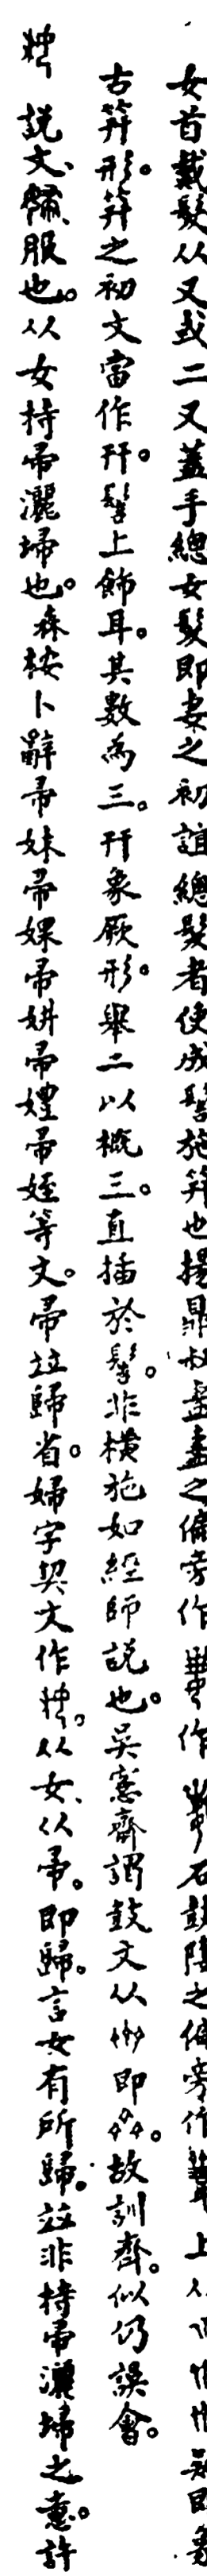 女首戴髮从又或二又蓋手總女髮即妻之初誼總髮者使成髻施笄也揚鼎叔盨盡之偏旁作 作 石鼓陣之偏旁作 上从 即象
古笄形。笄之初文當作幵。髻上飾耳。其數為三。幵象厥形。舉二以概三。直插於髻。非橫施如經師說也。吳愙齋謂鼓文从 即 。故訓齊。似仍誤會。
說文、歸、服也。从女持帚灑埽也。森桉卜辭帚妹帚婐帚妌帚媓帚姪等文。帚竝歸省。婦字契文作 。从女、从帚。即歸。言女有所歸。竝非持帚灑埽之意。許